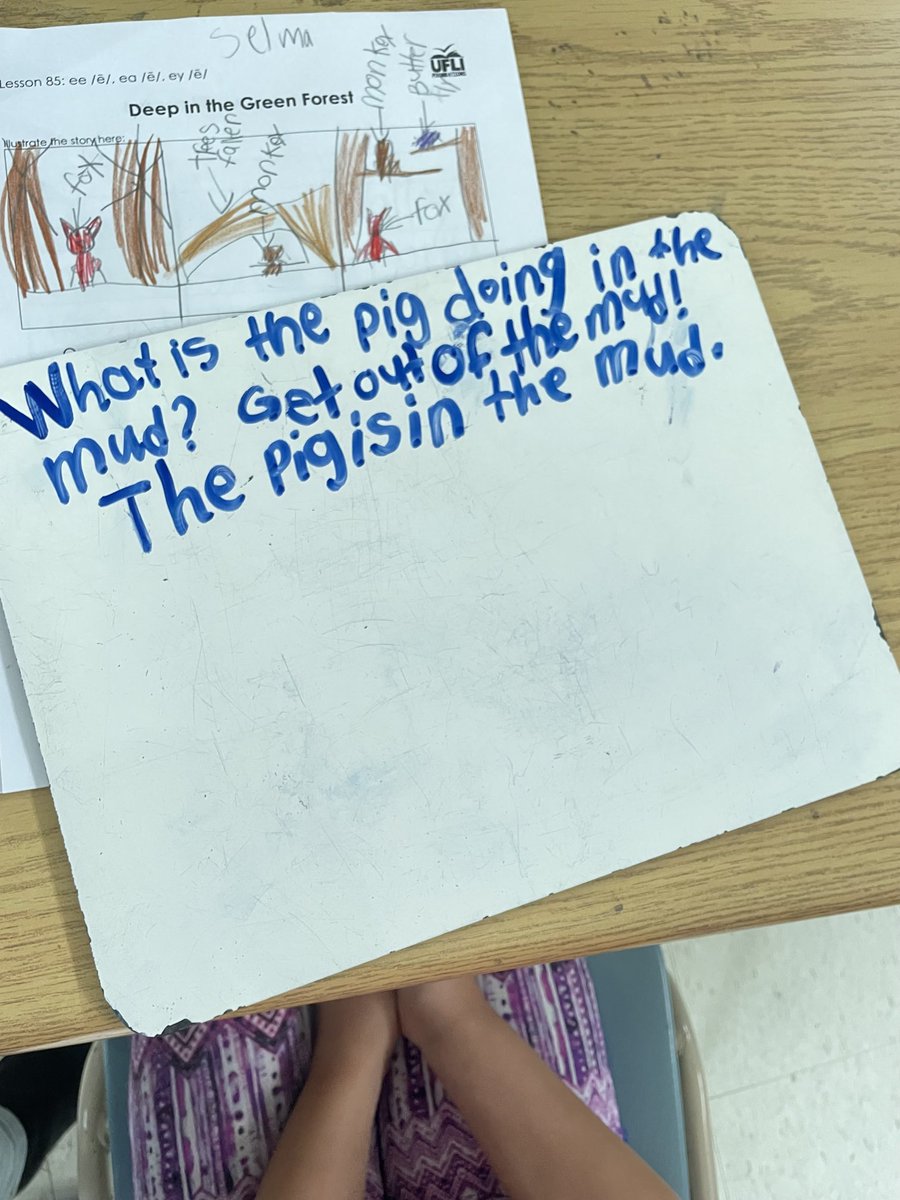 Selma
Lesson 85: ee /ē/, ea /ē/, ey /ē/
UFLI
Deep in the Green Forest
Illustrate the story here:
fox
trees
fallen
monkey
monkey
butter
fox
What is the pig doing in the
mud? Get out of the mud!
The pig is in the mud.